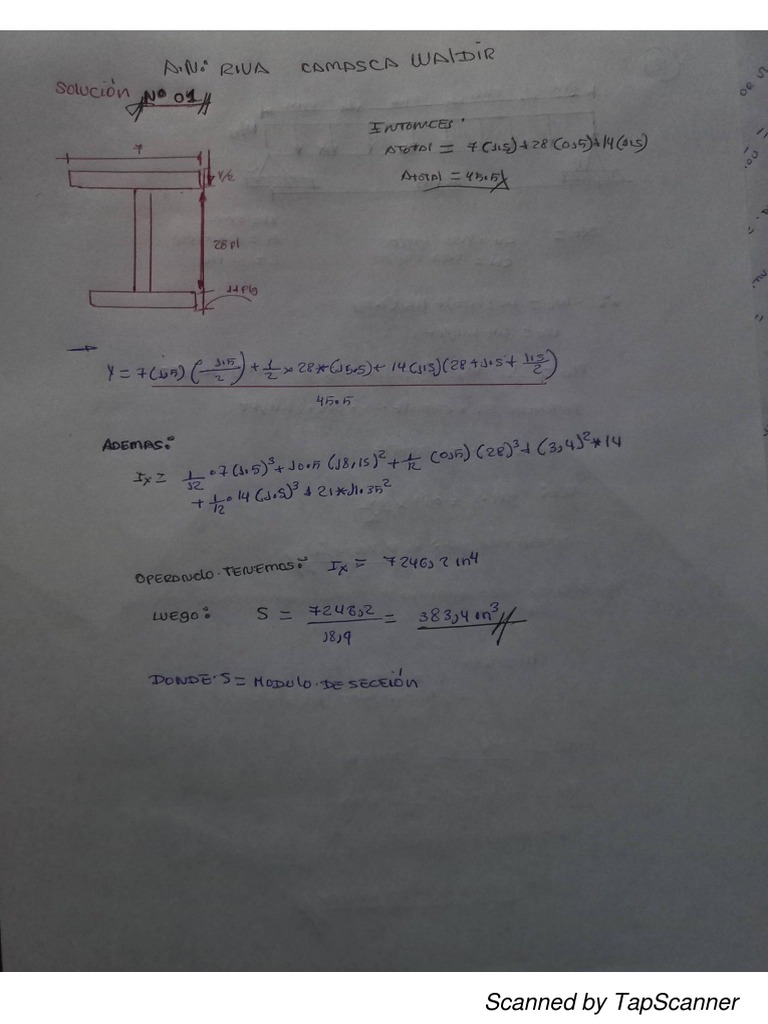 A.N.: RIVA CAMASCA WALDIR
SOLUCIÓN Nº 01
ENTONCES:
ATOTAL = 7(1.5)+28(0,5)+14(1.5)
ATOTAL = 45.5
7
28 pl
Y = 7(1,5)(1.5/2) + 1/2 × 28*(15.5) + 14(1.5)(28+1.5+1.5/2)
45.5
ADEMAS:
Ix = 1/12 · 7(1.5)³ + 10.5(18,15)² + 1/12 (0,5)(28)³ + (3,4)² * 14
+ 1/12 · 14(1.5)³ + 21*11.35²
OPERANDO TENEMOS: Ix = 7246,2 in⁴
LUEGO: S = 7246,2 / 18,9 = 383,4 in³
DONDE S = MODULO DE SECEIÓN
Scanned by TapScanner